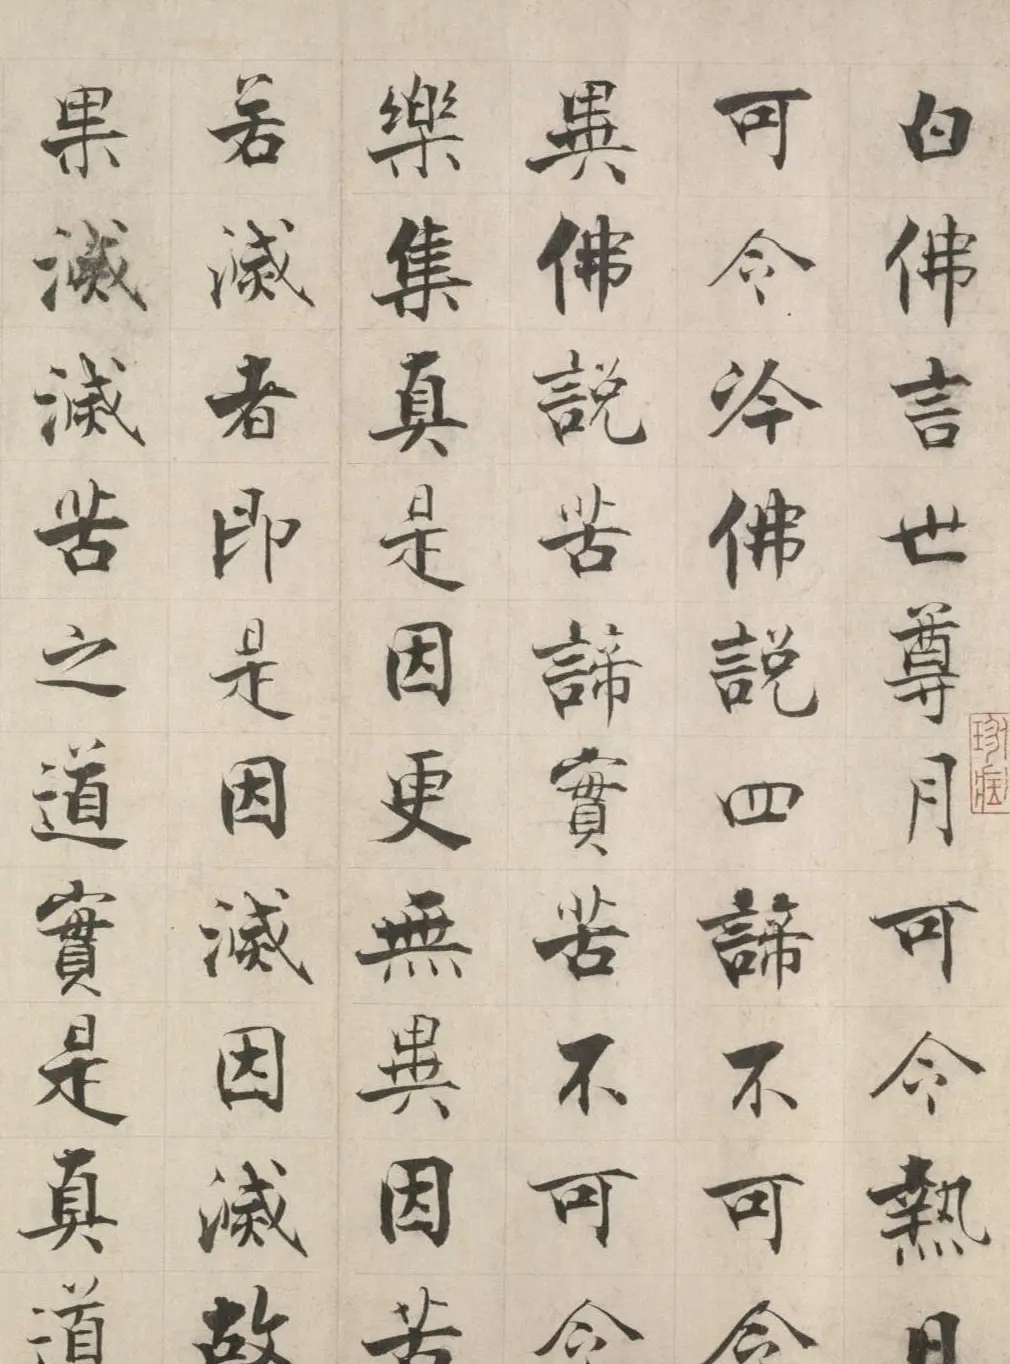 白佛言世尊月可令熱日
可令冷佛說四諦不可令
異佛說苦諦實苦不可令
樂集真是因更無異因苦
若滅者即是因滅因滅故
果滅滅苦之道實是真道